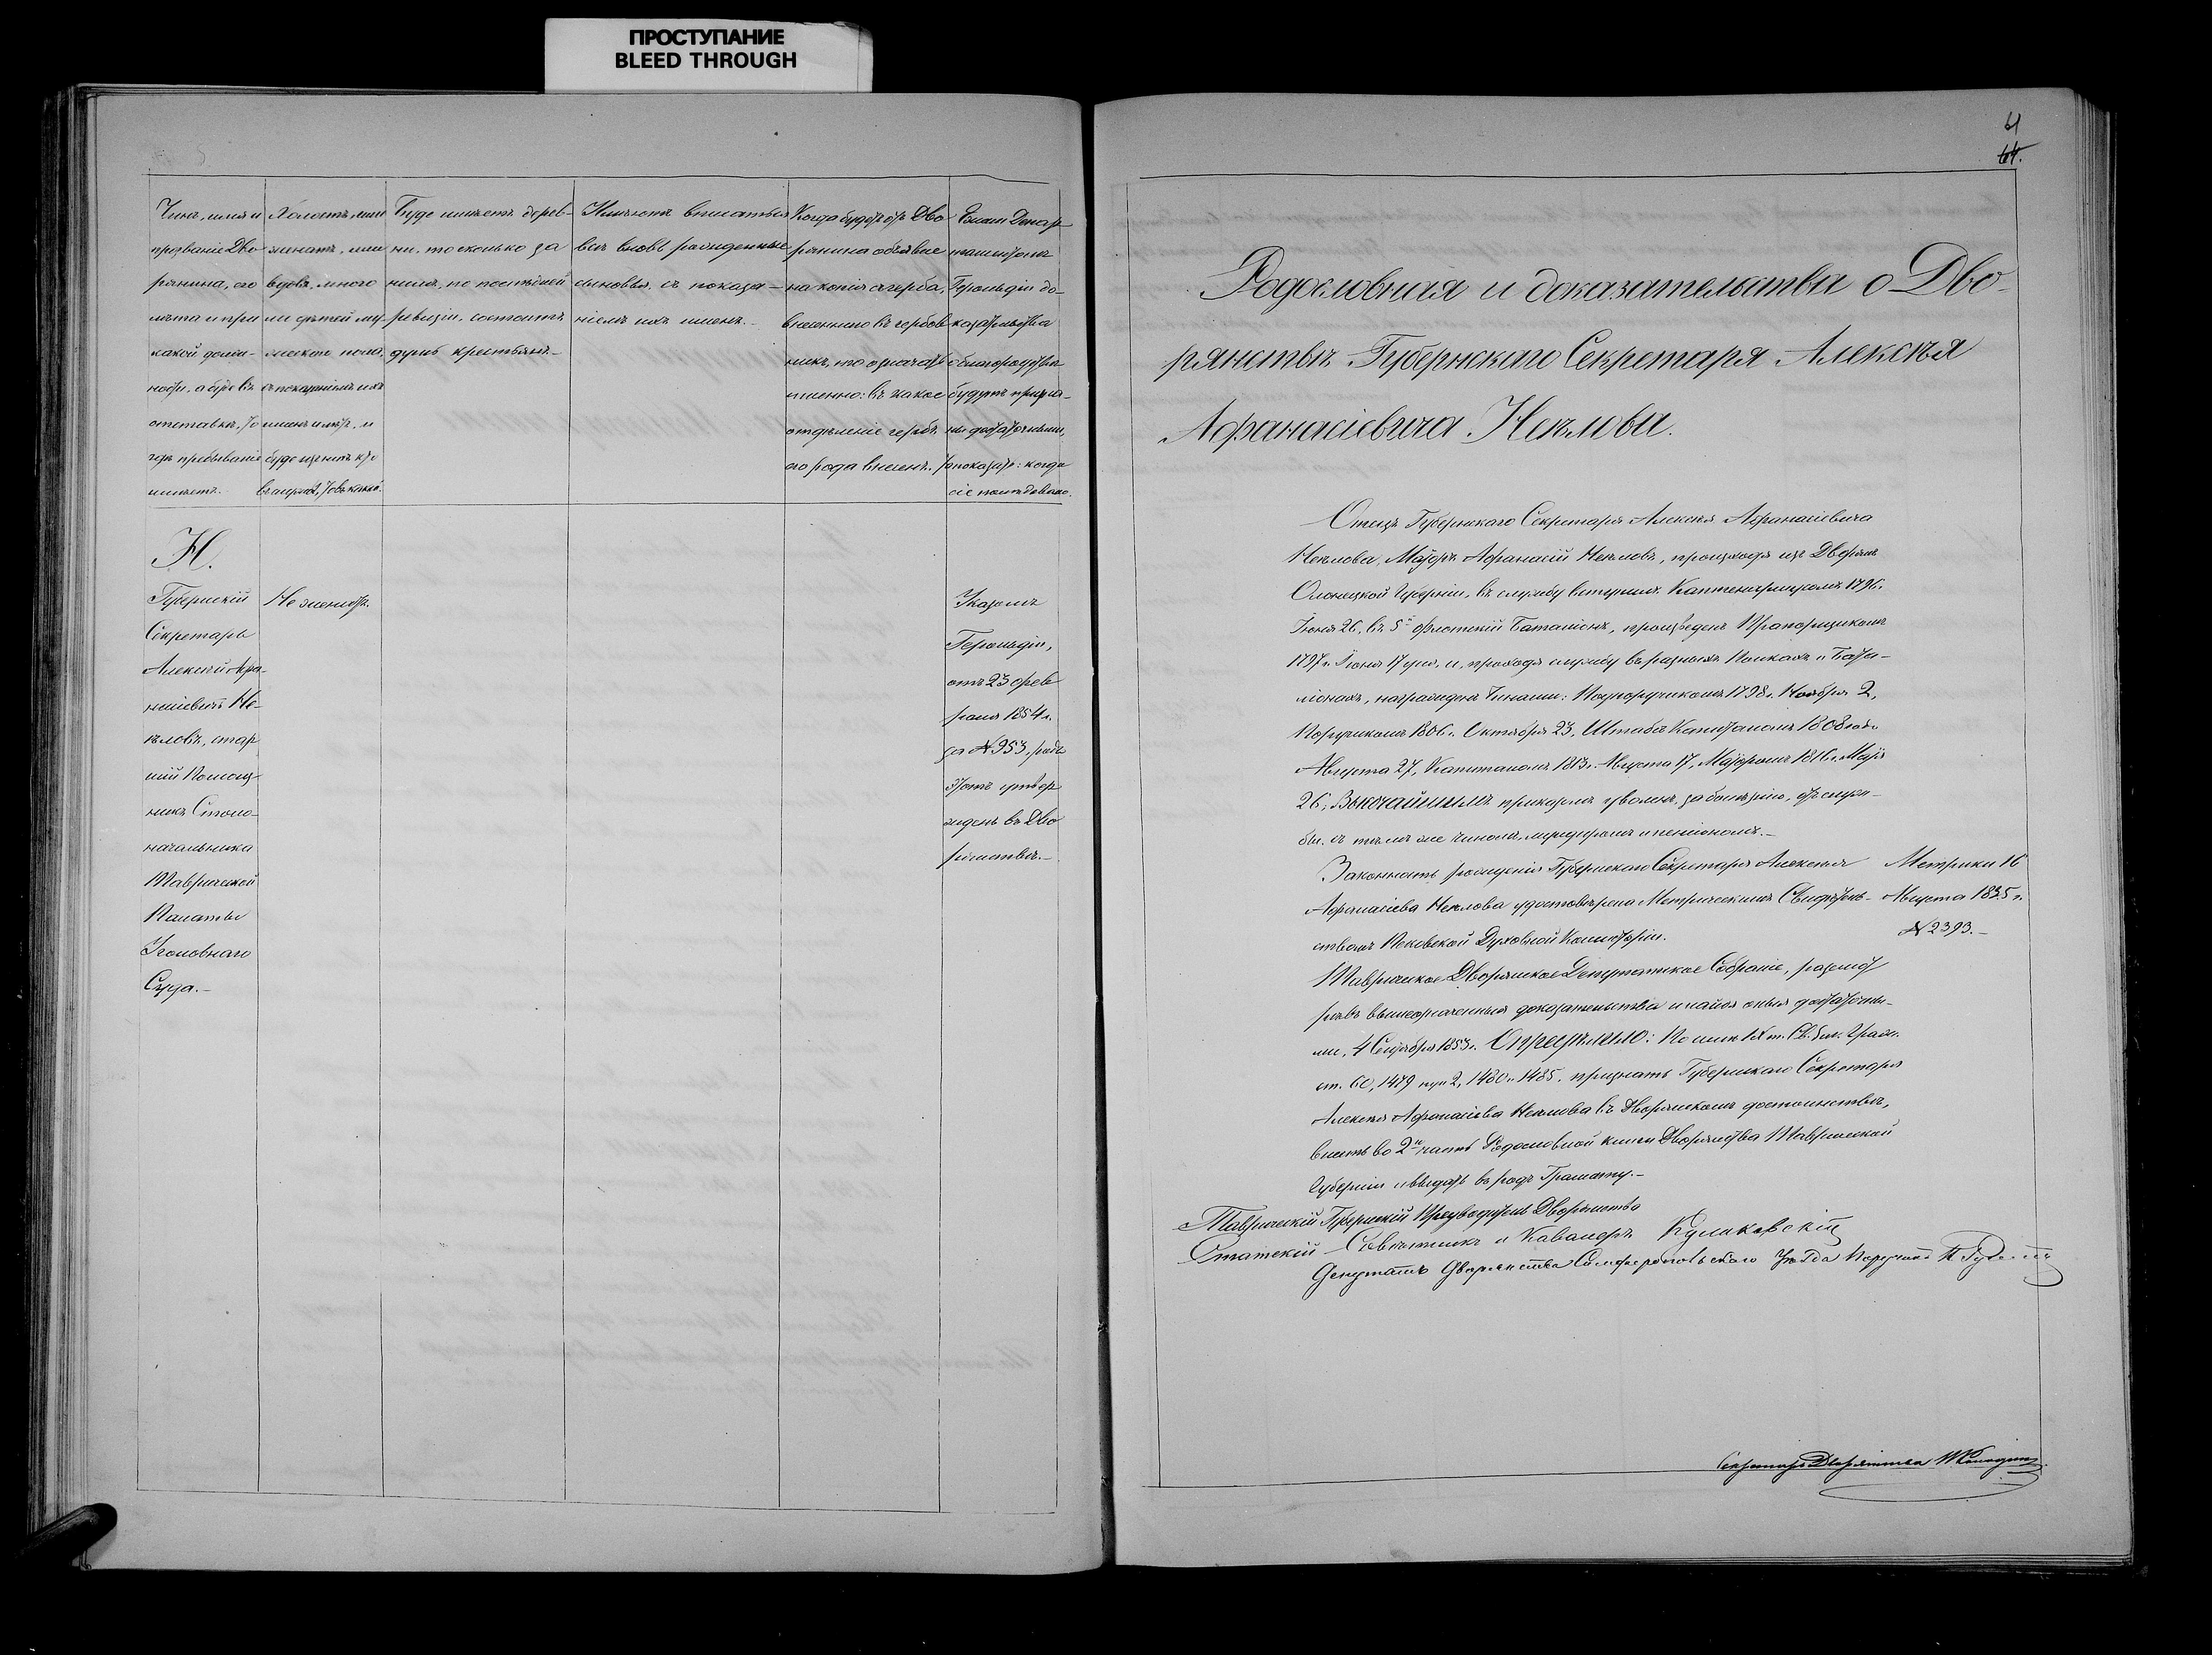 ПРОСТУПАНИЕ
BLEED THROUGH
Чинъ, имя и
прозваніе Дво-
рянина, его
лѣта и при
какой долж-
ности, а буде въ
отставкѣ, то
гдѣ пребываніе
имѣетъ.
Холостъ, или
женатъ, или
вдовъ, много
ли дѣтей му-
жескаго пола,
съ показаніемъ ихъ
именъ и лѣтъ, и
буде изъ нихъ кто
въ службѣ, то въ какой.
Буде имѣетъ дерев-
ни, то сколько за
нимъ, по послѣдней
ревизіи, состоитъ
душъ крестьянъ.-
Имѣютъ вписаться
всѣ вновь рожденные
сыновья, съ показа-
ніемъ ихъ именъ.-
Когда будетъ отъ Дво
рянина объявле
на копія съ герба,
внесеннаго въ гербов
никъ, то означать
именно: въ какое
отдѣленіе гербъ
его рода внесенъ.
Если Депар
таментомъ
Герольдіи до-
казательства
о благородствѣ
будутъ призна-
ны достаточными,
то показать: когда
сіе послѣдовало.
Н.
Губернскій
Секретарь
Алексѣй Афа-
насіевичъ Не-
ѣловъ, стар
шій Помощ-
никъ Столо-
начальника
Таврической
Палаты
Уголовнаго
Суда.-
Не женатъ.
Указомъ
Герольдіи,
отъ 23 Фев
раля 1854 г.
за № 953, родъ
этотъ утвер
жденъ въ Дво
рянствѣ.-
61
64.
Родословная и доказательства о Дво-
рянствѣ Губернскаго Секретаря Алексѣя
Афанасіевича Неѣлова.
Отецъ Губернскаго Секретаря Алексѣя Афанасіевича
Неѣлова, Маіоръ Афанасій Неѣловъ, происходя изъ Дворянъ
Олонецкой Губерніи, въ службу вступилъ Каптенармусомъ 1796 г.
Іюня 26, въ 5й Флотскій Баталіонъ, произведенъ Прапорщикомъ
1797 г. Іюня 17 дня, и, проходя службу въ разныхъ Полкахъ и Бата-
ліонахъ, награжденъ Чинами: Подпоручикомъ 1798 г. Ноября 2,
Поручикомъ 1806 г. Октября 23, Штабсъ Капитаномъ 1808 года
Августа 27, Капитаномъ 1813 г. Августа 17, Маіоромъ 1816 г. Мая
26; Высочайшимъ приказомъ уволенъ, за болѣзнію, отъ служ-
бы, съ тѣмъ же чиномъ, мундиромъ и пенсіономъ.-
Законность рожденія Губернскаго Секретаря Алексѣя
Афанасіева Неѣлова удостовѣрена Метрическимъ Свидѣтель-
ствомъ Псковской Духовной Консисторіи.
Метрики 16
Августа 1835 г.
№ 2393.-
Таврическое Дворянское Депутатское Собраніе, разсмот
рѣвъ вышеозначенныя доказательства и найдя оныя достаточны-
ми, 4 Сентября 1853 г. Опредѣлило: По силѣ IX т. Св: Зак. Граж.
ст. 60, 1479 пун 2, 1480 и 1485. признать Губернскаго Секретаря
Алексѣя Афанасіева Неѣлова въ Дворянскомъ достоинствѣ,
внесть во 2ю часть Родословной книги Дворянства Таврической
Губерніи и выдать въ родъ Грамоту.-
Таврическій Губернскій Предводитель Дворянства
Статскій Совѣтникъ и Кавалеръ Куликовскій
Депутатъ Дворянства Симферопольскаго Уѣзда Поручикъ
Секретарь Дворянства